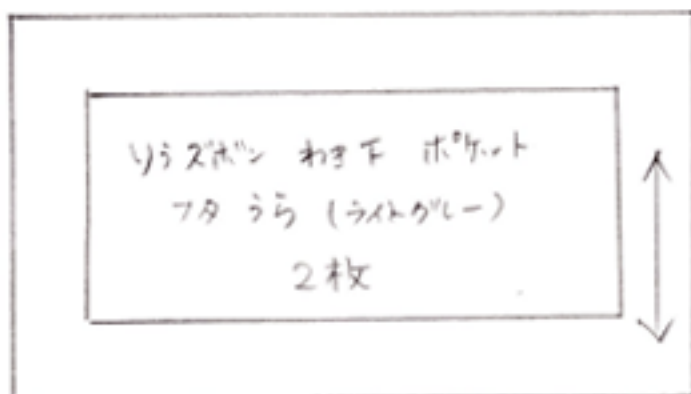 りうズボン わき下 ポケット
フタ うら (ライトグレー)
2枚